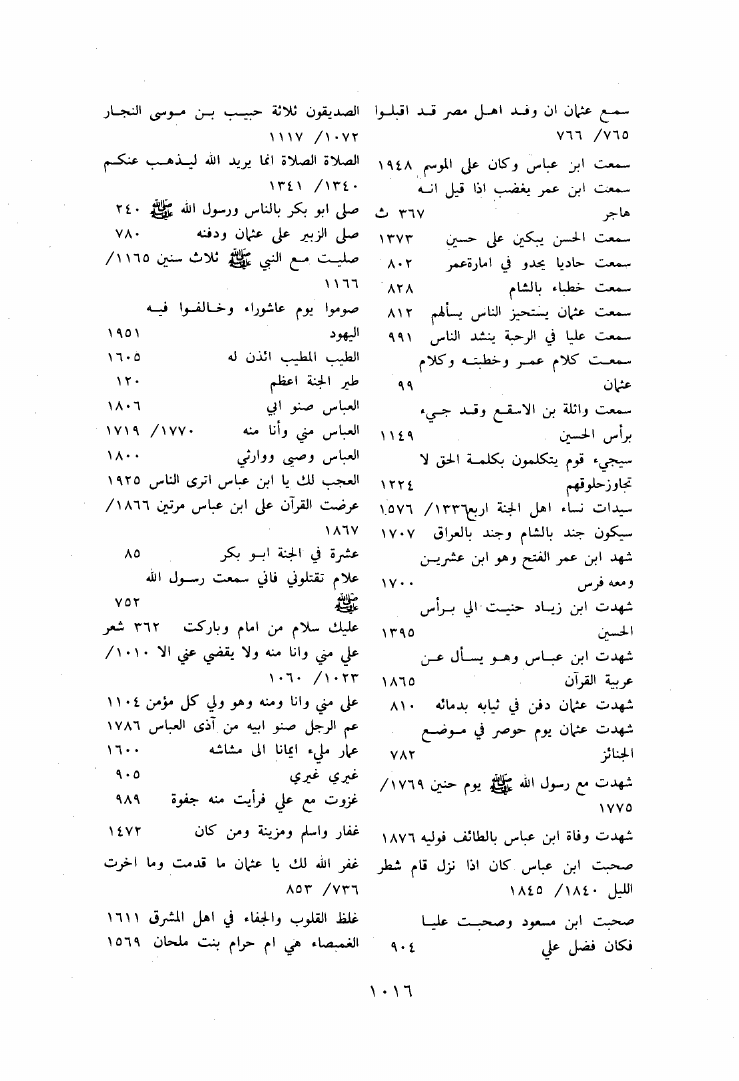 سمع عثمان ان وفد اهل مصر قد اقبلوا
٧٦٥/ ٧٦٦
سمعت ابن عباس وكان على الموسم ١٩٤٨
سمعت ابن عمر يغضب اذا قيل انه
هاجر ٣٦٧ ث
سمعت الحسن يبكين على حسين ١٣٧٣
سمعت حاديا يحدو في امارةعمر ٨٠٢
سمعت خطباء بالشام ٨٢٨
سمعت عثمان يستحيز الناس يسألهم ٨١٢
سمعت عليا في الرحبة ينشد الناس ٩٩١
سمعت كلام عمر وخطبته وكلام
عثمان ٩٩
سمعت واثلة بن الاسقع وقد جيء
برأس الحسين ١١٤٩
سيجيء قوم يتكلمون بكلمة الحق لا
تجاوزحلوقهم ١٢٢٤
سيدات نساء اهل الجنة اربع١٣٣٦/ ١٥٧٦
سيكون جند بالشام وجند بالعراق ١٧٠٧
شهد ابن عمر الفتح وهو ابن عشرين
ومعه فرس ١٧٠٠
شهدت ابن زياد حنيت الي برأس
الحسين ١٣٩٥
شهدت ابن عباس وهو يسأل عن
عربية القرآن ١٨٦٥
شهدت عثمان دفن في ثيابه بدمائه ٨١٠
شهدت عثمان يوم حوصر في موضع
الجنائز ٧٨٢
شهدت مع رسول الله ﷺ يوم حنين ١٧٦٩/
١٧٧٥
شهدت وفاة ابن عباس بالطائف فوليه ١٨٧٦
صحبت ابن عباس كان اذا نزل قام شطر
الليل ١٨٤٠/ ١٨٤٥
صحبت ابن مسعود وصحبت عليا
فكان فضل علي ٩٠٤
الصديقون ثلاثة حبيب بن موسى النجار
١٠٧٢/ ١١١٧
الصلاة الصلاة انما يريد الله ليذهب عنكم
١٣٤٠/ ١٣٤١
صلى ابو بكر بالناس ورسول الله ﷺ ٢٤٠
صلى الزبير على عثمان ودفنه ٧٨٠
صليت مع النبي ﷺ ثلاث سنين ١١٦٥/
١١٦٦
صوموا يوم عاشوراء وخالفوا فيه
اليهود ١٩٥١
الطيب المطيب ائذن له ١٦٠٥
طير الجنة اعظم ١٢٠
العباس صنو ابي ١٨٠٦
العباس مني وأنا منه ١٧٧٠/ ١٧١٩
العباس وصبى ووارثي ١٨٠٠
العجب لك يا ابن عباس اترى الناس ١٩٢٥
عرضت القرآن على ابن عباس مرتين ١٨٦٦/
١٨٦٧
عشرة في الجنة ابو بكر ٨٥
علام تقتلوني فاني سمعت رسول الله
ﷺ ٧٥٢
عليك سلام من امام وباركت ٣٦٢ شعر
علي مني وانا منه ولا يقضي عني الا ١٠١٠/
١٠٢٣/ ١٠٦٠
على مني وانا ومنه وهو ولي كل مؤمن ١١٠٤
عم الرجل صنو ابيه من آذى العباس ١٧٨٦
عمار مليء ايمانا الى مشاشه ١٦٠٠
غيري غيري ٩٠٥
غزوت مع علي فرأيت منه جفوة ٩٨٩
غفار واسلم ومزينة ومن كان ١٤٧٢
غفر الله لك يا عثمان ما قدمت وما اخرت
٧٣٦/ ٨٥٣
غلظ القلوب والجفاء في اهل المشرق ١٦١١
الغميصاء هي ام حرام بنت ملحان ١٥٦٩
١٠١٦